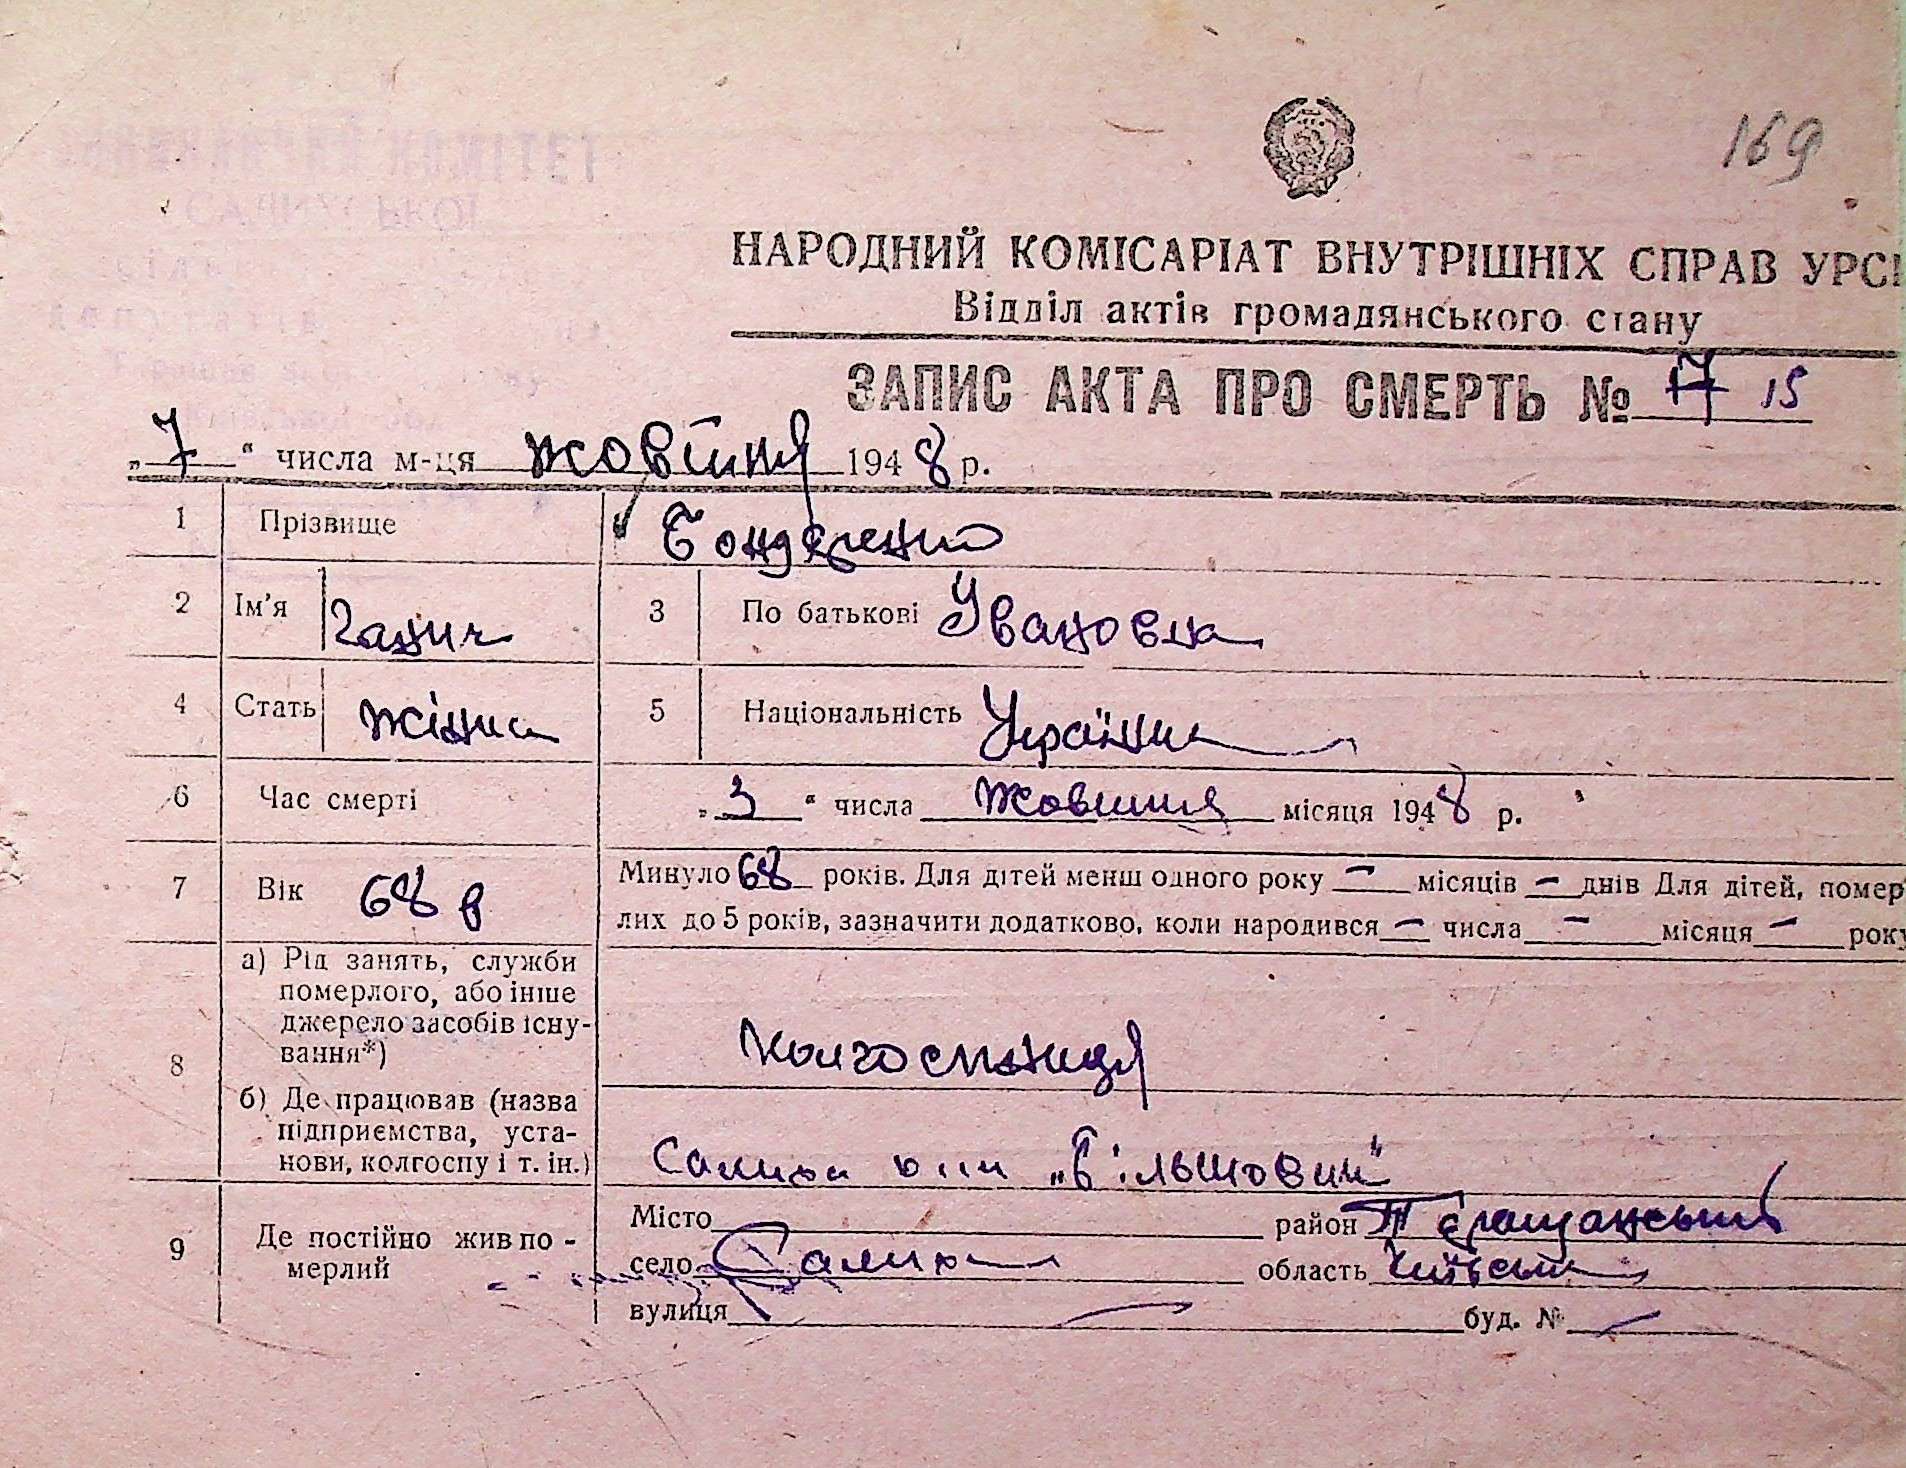 169
КОМІТЕТ
НАРОДНИЙ КОМІСАРІАТ ВНУТРІШНІХ СПРАВ УРСР
Відділ актів громадянського стану
ЗАПИС АКТА ПРО СМЕРТЬ № 17 15
„7“ числа м-ця жовтня 1948 р.
1 Прізвище Бондаренко
2 Ім'я 3 По батькові Ивановна
4 Стать жіноч 5 Національність Україн
6 Час смерті „3“ числа жовтня місяця 1948 р.
7 Вік 68 р Минуло 68 років. Для дітей менш одного року – місяців – днів Для дітей, помер-
лих до 5 років, зазначити додатково, коли народився – числа – місяця – року
8 а) Рід занять, служби
померлого, або інше
джерело засобів існу-
вання*)
колгоспниця
б) Де працював (назва
підприємства, уста-
нови, колгоспу і т. ін.)
Салиха "Більшовик"
9 Де постійно жив по-
мерлий
Місто район Таращанський
село Салиха область Київська
вулиця буд. №